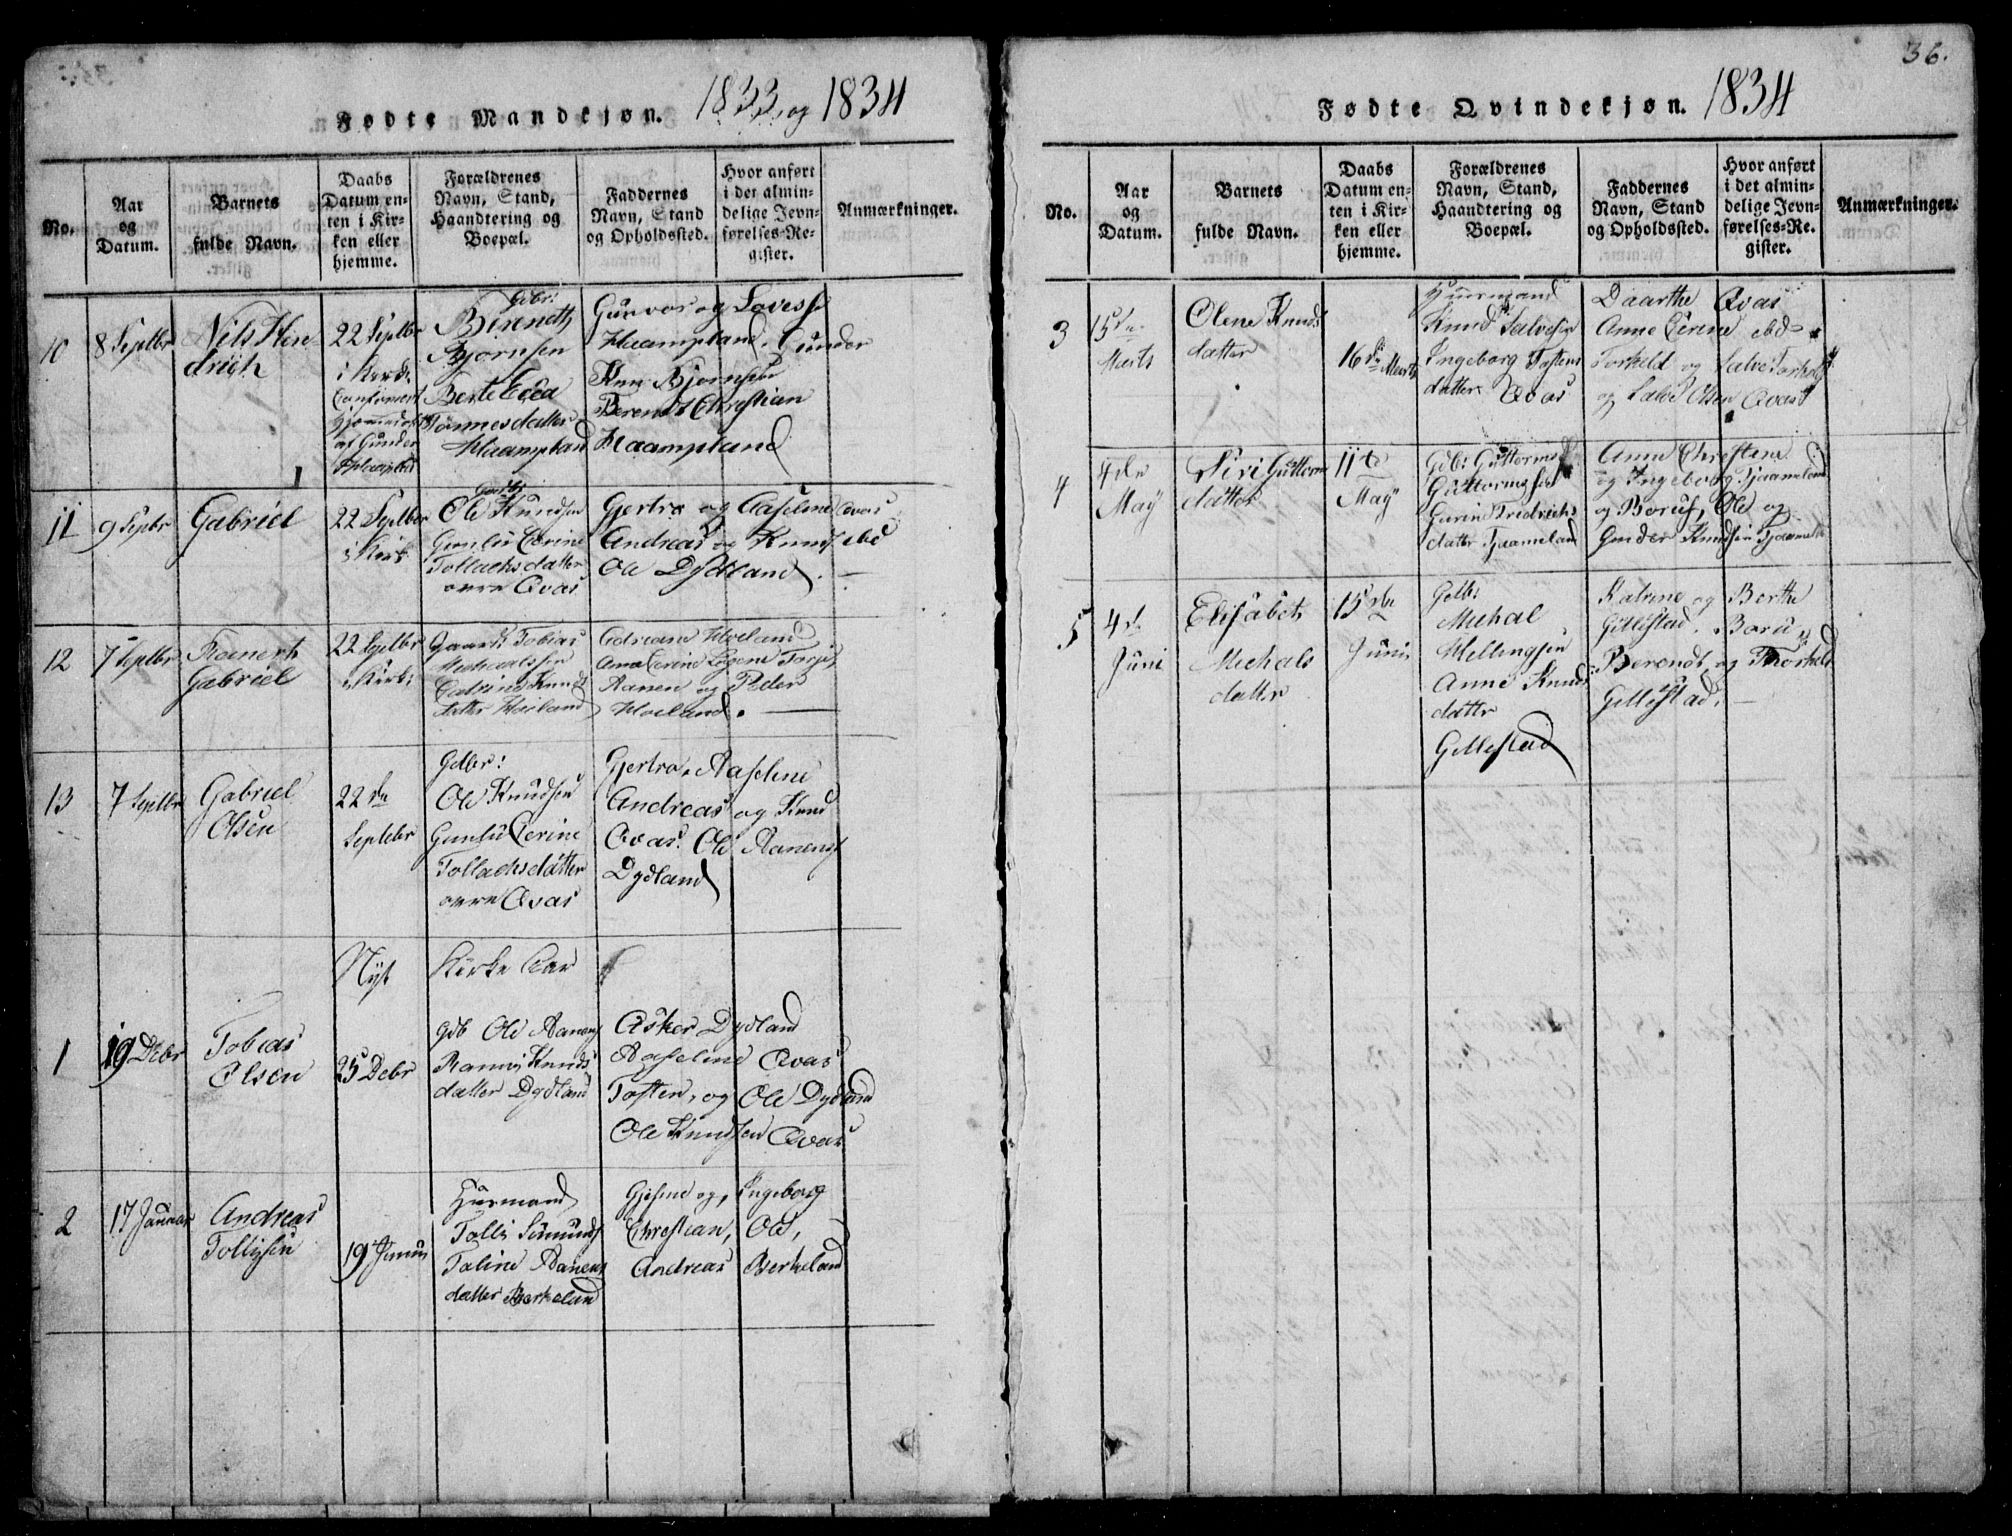 Fødte Mandkjøn. 1833, og 1834
No.
Aar
og
Datum.
Barnets
fulde Navn.
Daabs
Datum en-
ten i Kir-
ken eller
hjemme.
Forældrenes
Navn, Stand,
Haandtering og
Boepæl.
Faddernes
Navn, Stand
og Opholdssted.
Hvor anført
i det almin-
delige Jevn-
førelses-Re-
gister.
Anmærkninger.
10
8 Septbr
Nils Hen
drich
22 Septbr
i Kirk:
af Gunder
Gdbr:
Berendt
Bjørnsen
Berte
Tønnesdatter
Haampland
Gunvor og Lovesse
Haampland. Gunder
Knu Bjørnsen
Berendt Christian
Haampland
11
9 Septbr
Gabriel
22 Septbr
i Kirk
Ole Knudsen
Gunlu Cerine
Tollachsdatter
øvre Qvas
Gjertro og Aaseline Qvas
Andreas og Knud ibd
Ole Dydland. —
12
7 Septbr
Gabriel
22 Septbr
i Kirk:
Tobias
Michaelsen
Catrine Knuds
datter Høiland
Adriane Høiland
Ana Cerine
Aanen og Peder
Høiland. —
13
7 Septbr
Gabriel
Olsen
22de
Septebr
Gdbr:
Ole Knudsen
Gunlu Cerine
Tollachsdatter
øvre Qvas
Gjertro, Aaseline
Andreas og Knud
Qvas. Ole Aanens
Dydland
Nyt Kirke Aar
1
19 Debr
Tobias
Olsen
25 Debr
Gdb Ole Aanens
Knuds
datter Dydland
Asker Dydland
Aaseline Qvas
Tosten, og Ole Dydland
Ole Knudsen Qvas
2
17 Januar
Andreas
Tollysen
19 Januar
Huusmand
Tolli
Taline Aanens
datter Berkeland
og, Ingeborg
Christian, Ole,
Andreas Berkeland
36.
Fødte Qvindekjøn. 1834
No.
Aar
og
Datum.
Barnets
fulde Navn.
Daabs
Datum en-
ten i Kir-
ken eller
hjemme.
Forældrenes
Navn, Stand,
Haandtering og
Boepæl.
Faddernes
Navn, Stand
og Opholdssted.
Hvor anført
i det almin-
delige Jevn-
førelses-Re-
gister.
Anmærkninger.
3
15de
Marts
Olene Knuds
datter
16de Marts
Huusmand
Knud Salvesen
Ingeborg Tostens
datter Qvas
Daarthe Qvas
Anne Cerine ibd
Torkeld og Salve
og Salve Olsen Qvas
4
4de
May
Siri Guttorms
datter
11te
May
Gdb: Guttorm
Guttormsen
Gurine Fredrichs
datter Tjaameland
Anne Chrestene
og Ingeborg Tjaameland
og Boruf, Ole og
Gunder Knudsen
5
4de
Juni
Elisabet
Michals
datter
15de
Juni
Gdb:
Michal
Mellingsen
Anne Knuds
datter
Gillestad
Katrine og Berthe
Gillestad. Boruf
Berendt og Thorkeld
Gillestad. —